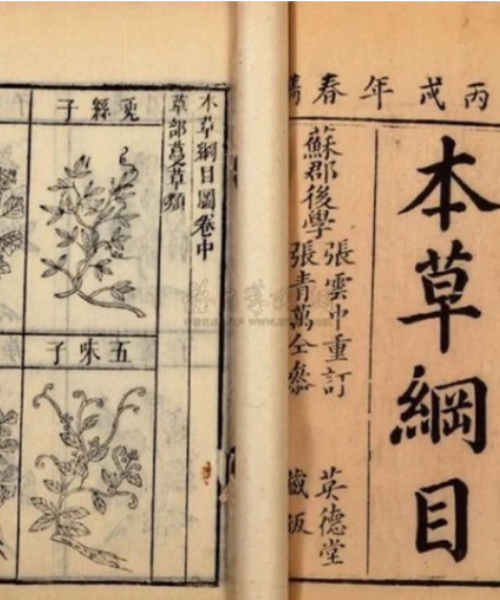 丙戌年春
本草綱目
張雲中重訂
蘇郡後學
張青萬仝參
英德堂
藏版
本草綱目圖卷中
草部蔓草類
菟絲子
五味子